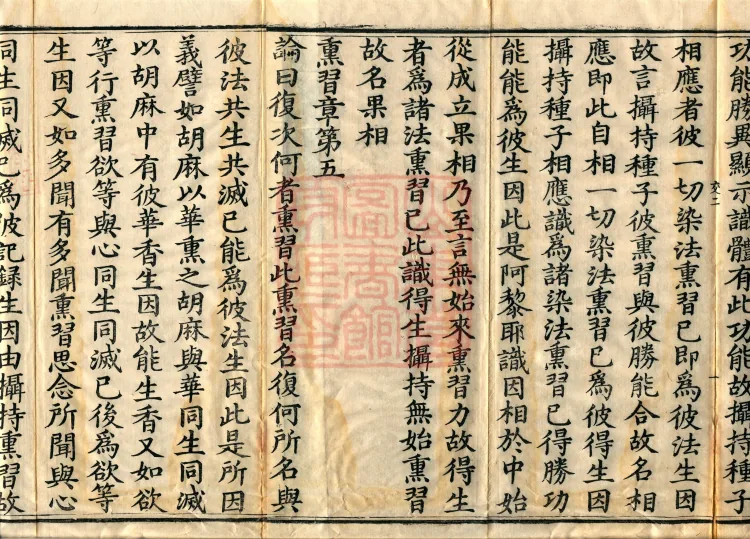 功能勝異顯示識體有此功能故攝持種子
相應者彼一切染法熏習已即為彼法生因
故言攝持種子彼熏習與彼勝能合故名相
應即此自相一切染法熏習已為彼得生因
攝持種子相應識為諸染法熏習已得勝功
能能為彼生因此是阿黎耶識因相於中始
從成立果相乃至言無始來熏習力故得生
者為諸法熏習已此識得生攝持無始熏習
故名果相
熏習章第五
論曰復次何者熏習此熏習名復何所名與
彼法共生共滅已能為彼法生因此是所因
義譬如胡麻以華熏之胡麻與華同生同滅
以胡麻中有彼華香生因故能生香又如欲
等行熏習欲等與心同生同滅已後為欲等
生因又如多聞有多聞熏習思念所聞與心
同生同滅已為彼記録生因由攝持熏習故